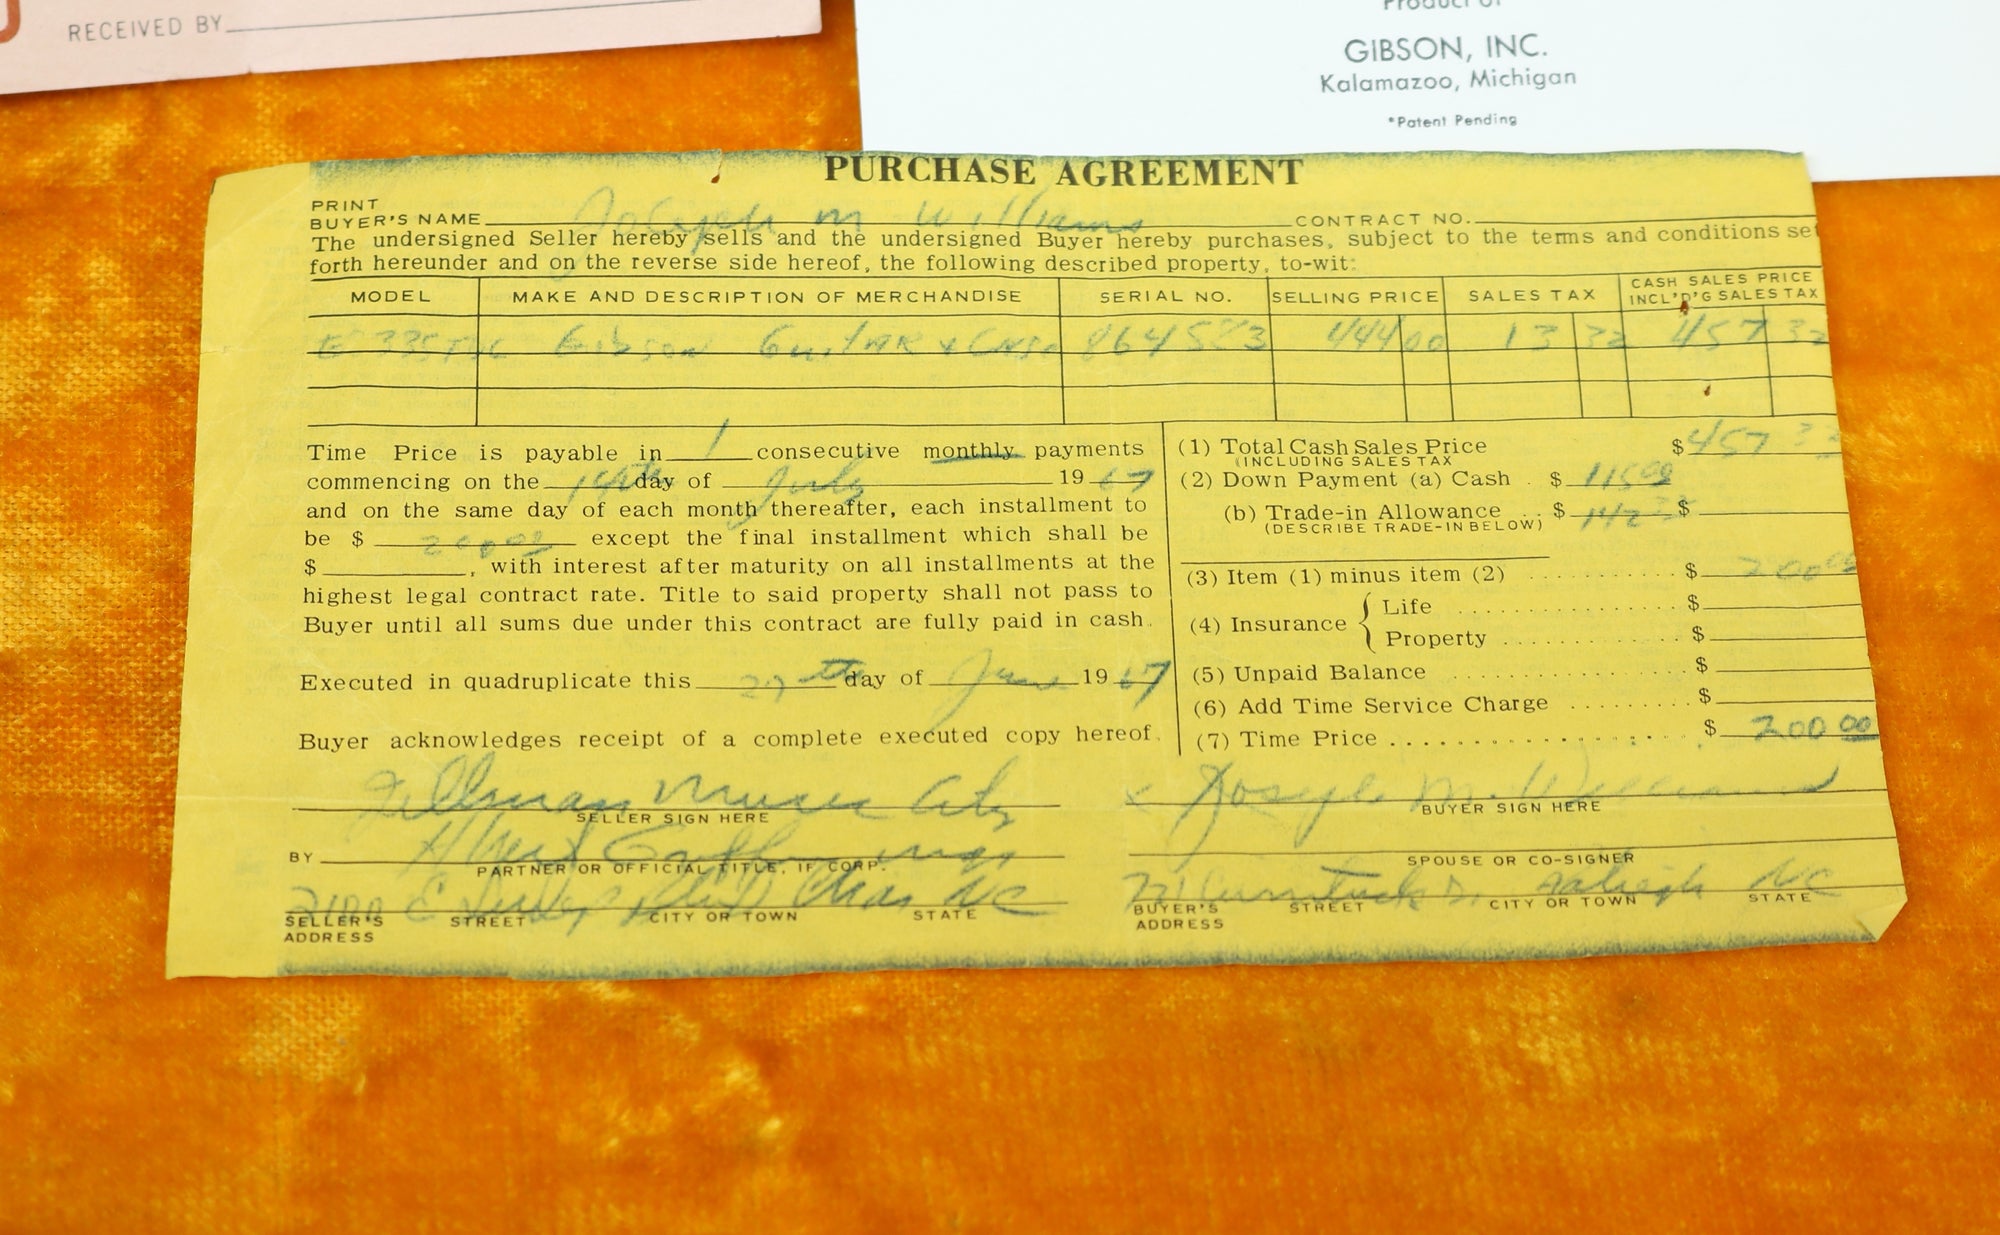 RECEIVED BY
Product of
GIBSON, INC.
Kalamazoo, Michigan
*Patent Pending
PURCHASE AGREEMENT
PRINT
BUYER'S NAME Joseph M Williams CONTRACT NO.
The undersigned Seller hereby sells and the undersigned Buyer hereby purchases, subject to the terms and conditions set
forth hereunder and on the reverse side hereof, the following described property, to-wit:
MODEL MAKE AND DESCRIPTION OF MERCHANDISE SERIAL NO. SELLING PRICE SALES TAX CASH SALES PRICE INCL'D'G SALES TAX
Gibson Guitar & Case 864583 444 00 13 32 457 32
Time Price is payable in 1 consecutive monthly payments
commencing on the 14th day of July 19 67
and on the same day of each month thereafter, each installment to
be $ 200 00 except the final installment which shall be
$ , with interest after maturity on all installments at the
highest legal contract rate. Title to said property shall not pass to
Buyer until all sums due under this contract are fully paid in cash.
Executed in quadruplicate this 27th day of June 19 67
Buyer acknowledges receipt of a complete executed copy hereof.
(1) Total Cash Sales Price $ 457 32
(INCLUDING SALES TAX
(2) Down Payment (a) Cash . $ 115 00
(b) Trade-in Allowance . . $ 142 $
(DESCRIBE TRADE-IN BELOW)
(3) Item (1) minus item (2) $ 200 00
(4) Insurance { Life $
Property $
(5) Unpaid Balance $
(6) Add Time Service Charge $
(7) Time Price $ 200 00
Music City
SELLER SIGN HERE
BY Albert
PARTNER OR OFFICIAL TITLE, IF CORP.
2100 E Blvd Char NC
SELLER'S ADDRESS STREET CITY OR TOWN STATE
x Joseph M. Williams
BUYER SIGN HERE
SPOUSE OR CO-SIGNER
Raleigh NC
BUYER'S ADDRESS STREET CITY OR TOWN STATE